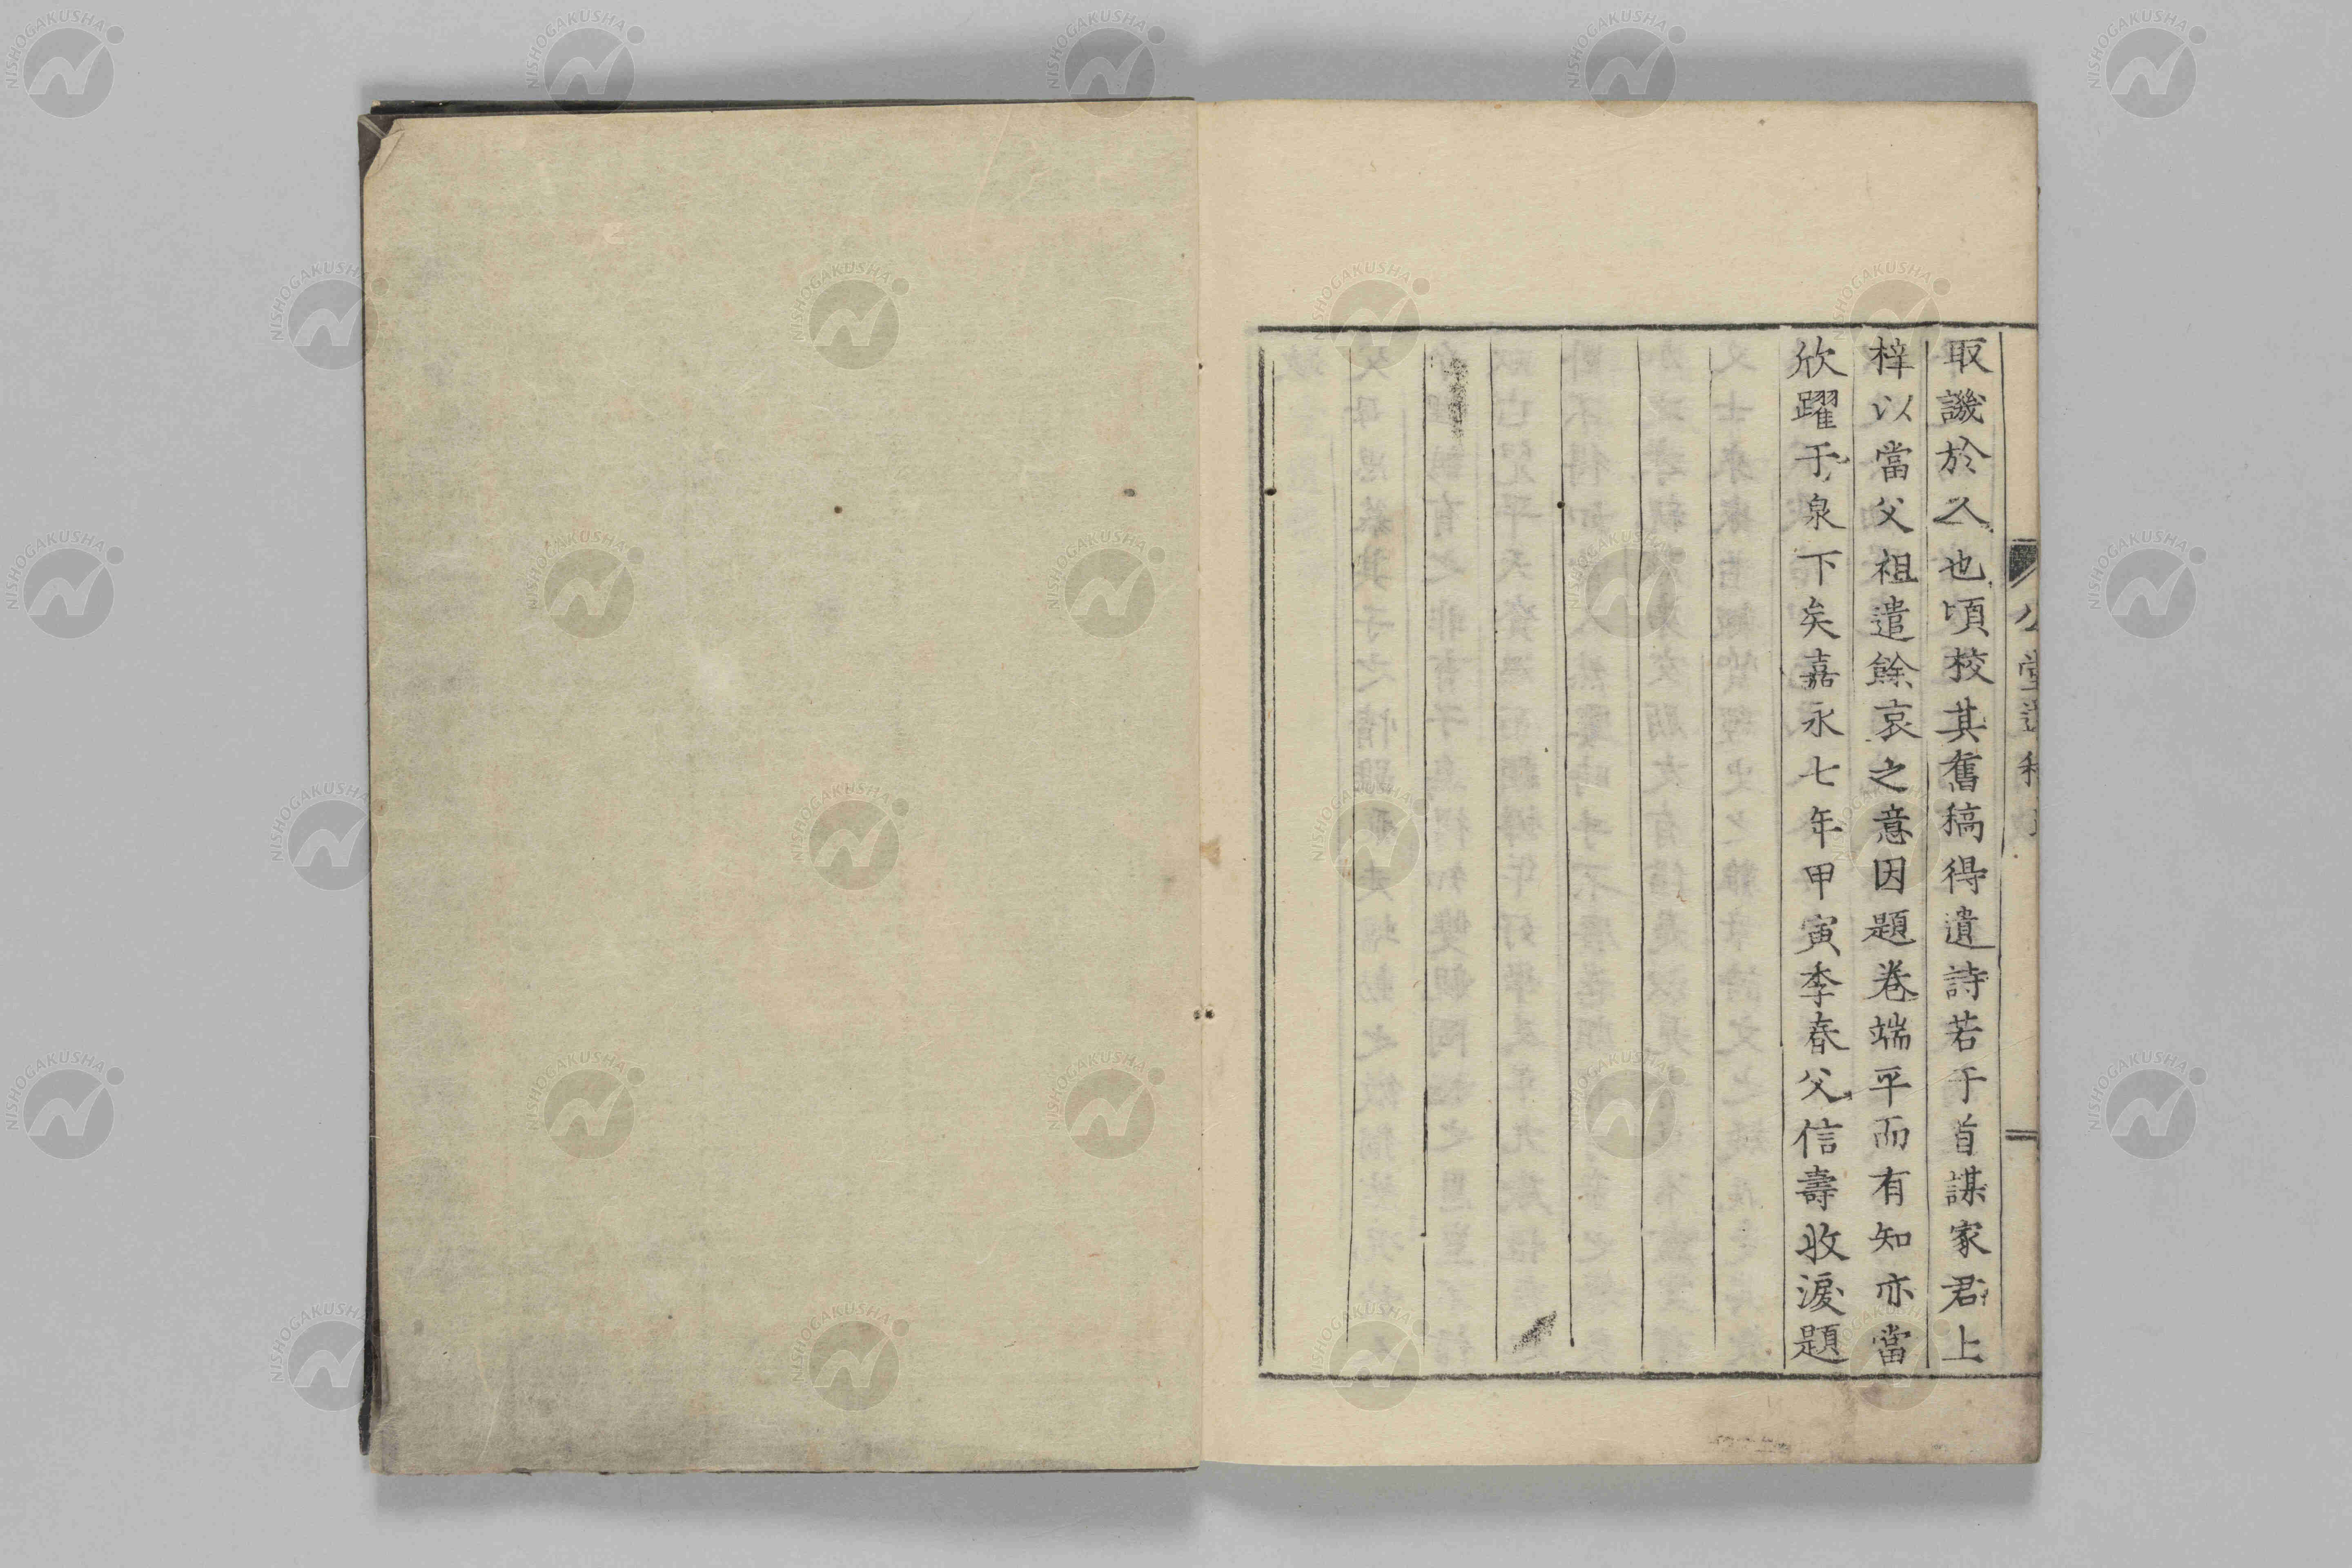 取譏於久也頃校其舊稿得遺詩若干首謀家君上
梓以當父祖遣餘哀之意因題卷端平而有知亦當
欣躍于泉下矣嘉永七年甲寅季春父信壽收淚題
NISHOGAKUSHA